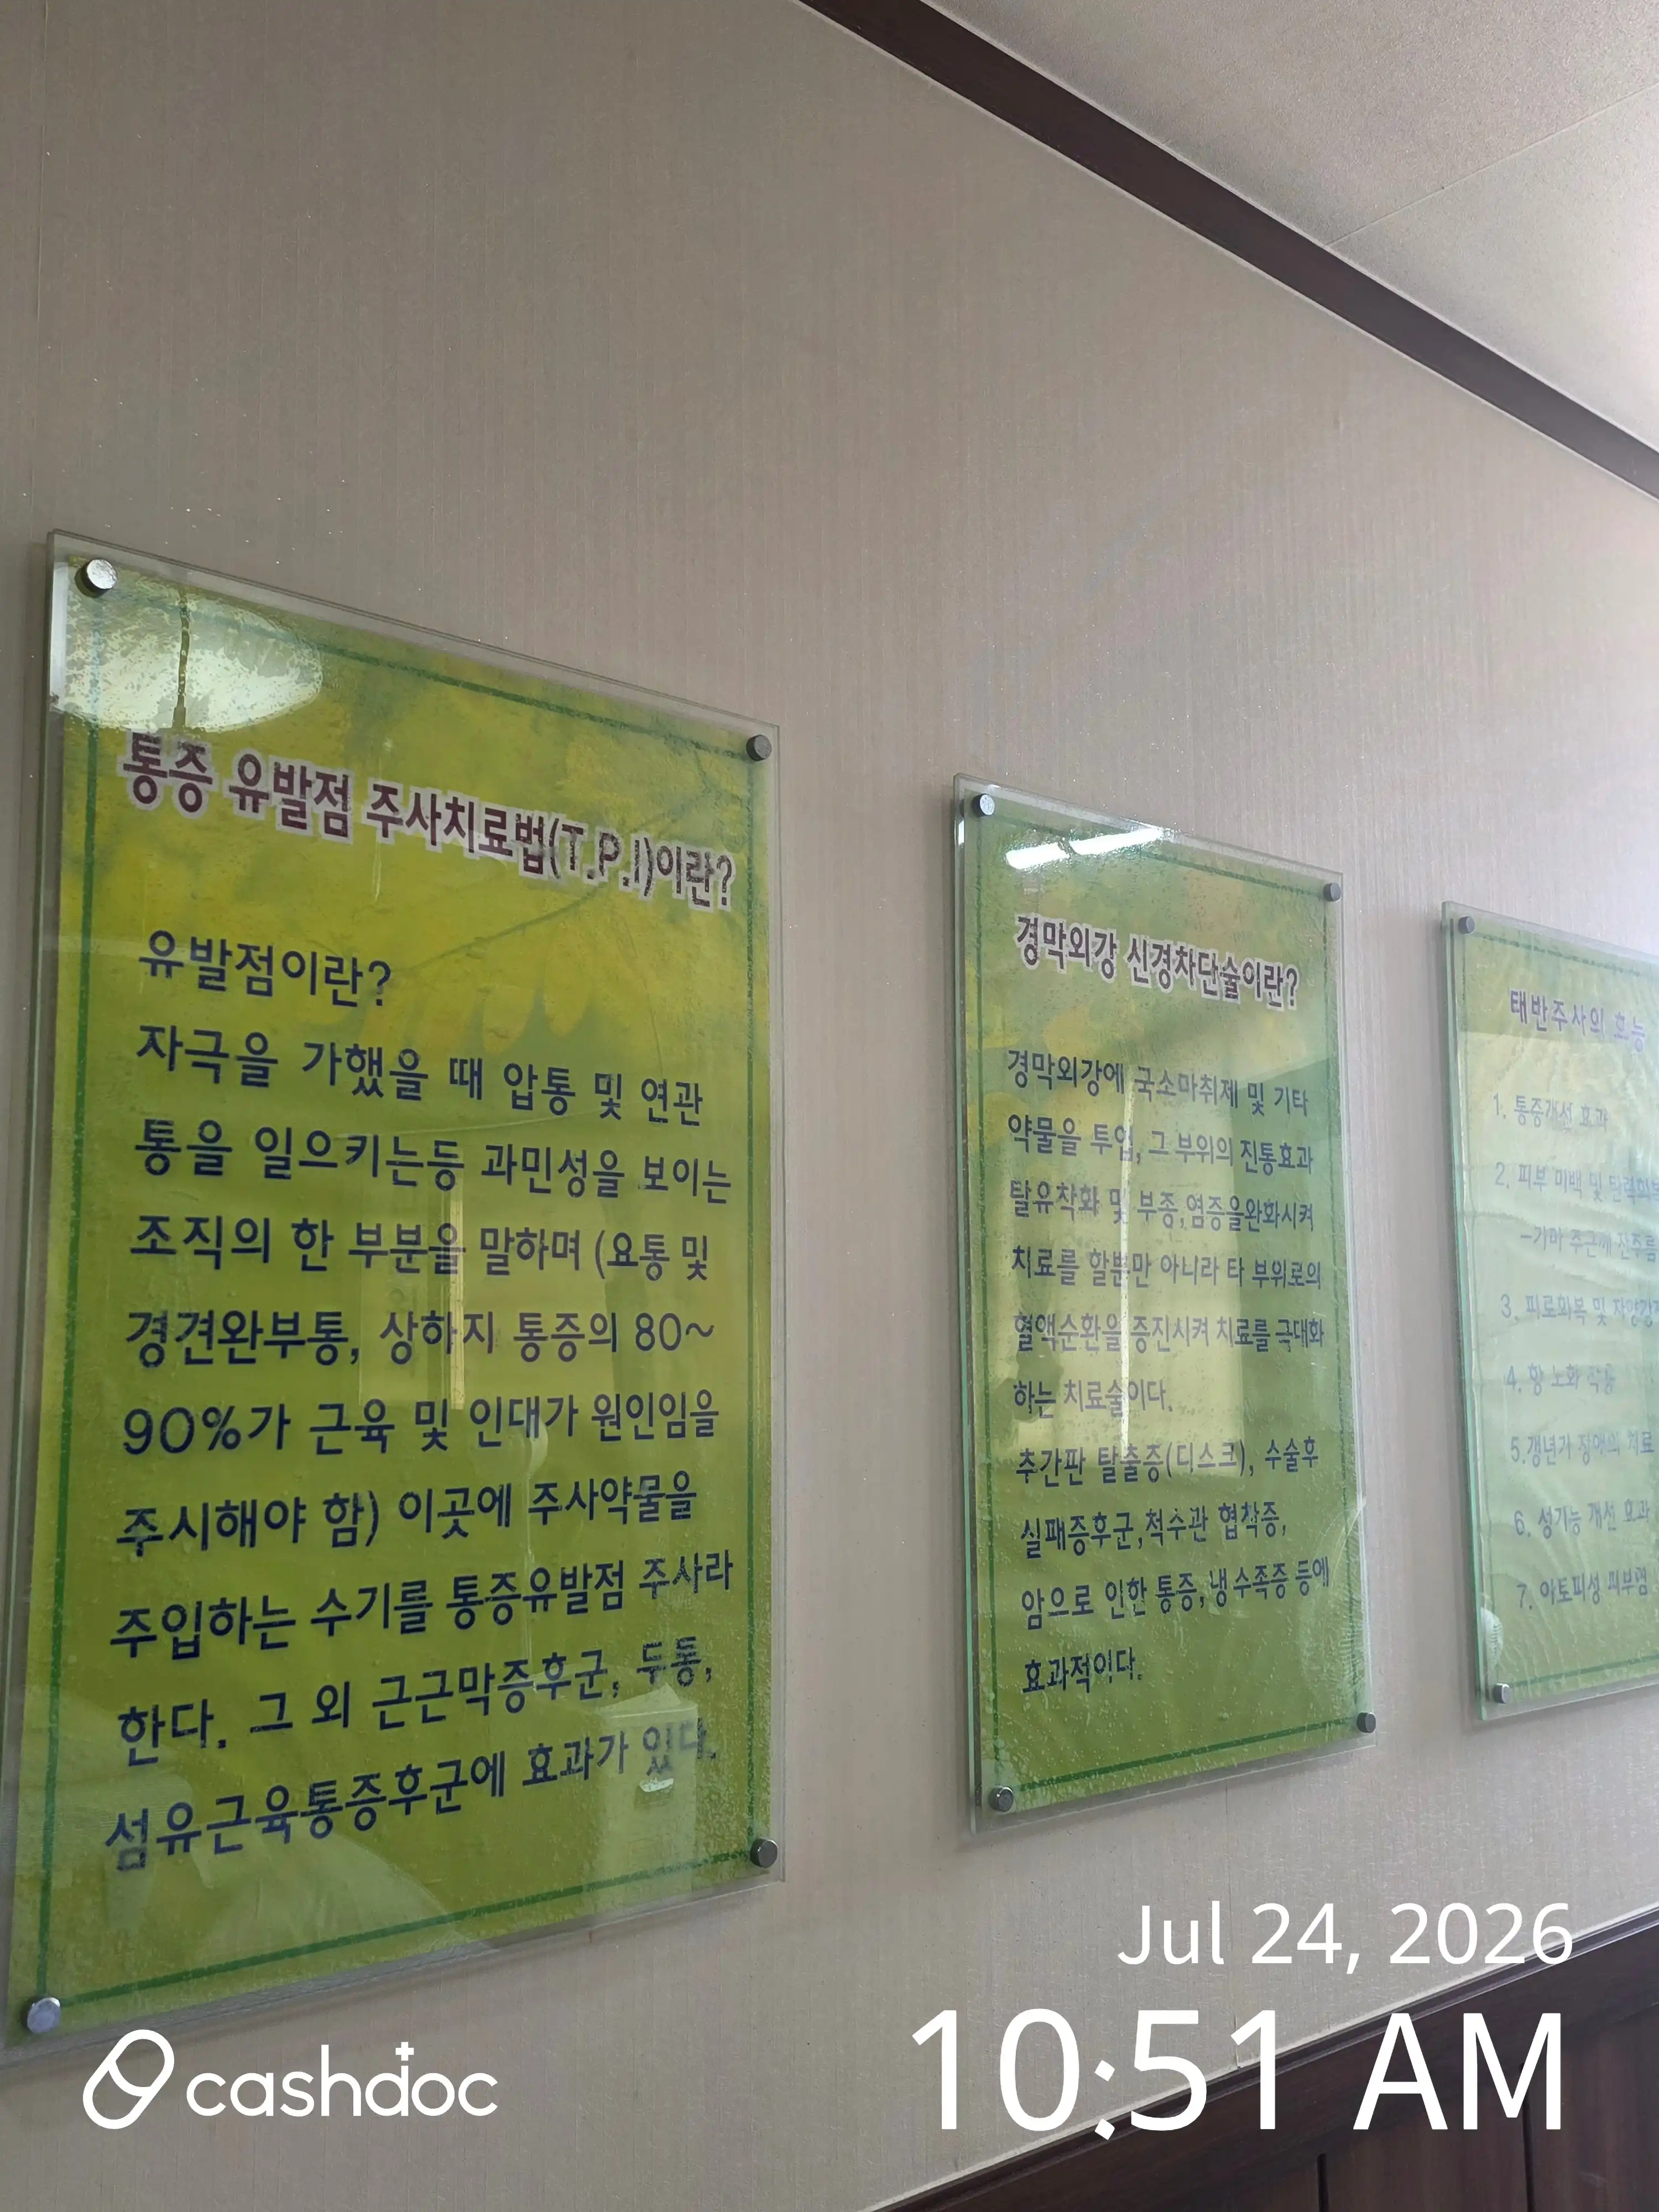 통증 유발점 주사치료법(T.P.I)이란?
유발점이란?
자극을 가했을 때 압통 및 연관
통을 일으키는등 과민성을 보이는
조직의 한 부분을 말하며 (요통 및
경견완부통, 상하지 통증의 80~
90%가 근육 및 인대가 원인임을
주시해야 함) 이곳에 주사약물을
주입하는 수기를 통증유발점 주사라
한다. 그 외 근근막증후군, 두통,
섬유근육통증후군에 효과가 있다.
경막외강 신경차단술이란?
경막외강에 국소마취제 및 기타
약물을 투입, 그 부위의 진통효과
탈유착화 및 부종,염증을완화시켜
치료를 할뿐만 아니라 타 부위로의
혈액순환을 증진시켜 치료를 극대화
하는 치료술이다.
추간판 탈출증(디스크), 수술후
실패증후군,척수관 협착증,
암으로 인한 통증, 냉 수족증 등에
효과적이다.
태반주사의 효능
1. 통증개선 효과
2. 피부 미백 및 탄력회복
-기미 주근깨 잔주름
3. 피로회복 및 자양강
4. 항 노화 작용
5.갱년기 장애의 치료
6. 성기능 개선 효과
7. 아토피성 피부염
Jul 24, 2026
10:51 AM
cashdoc